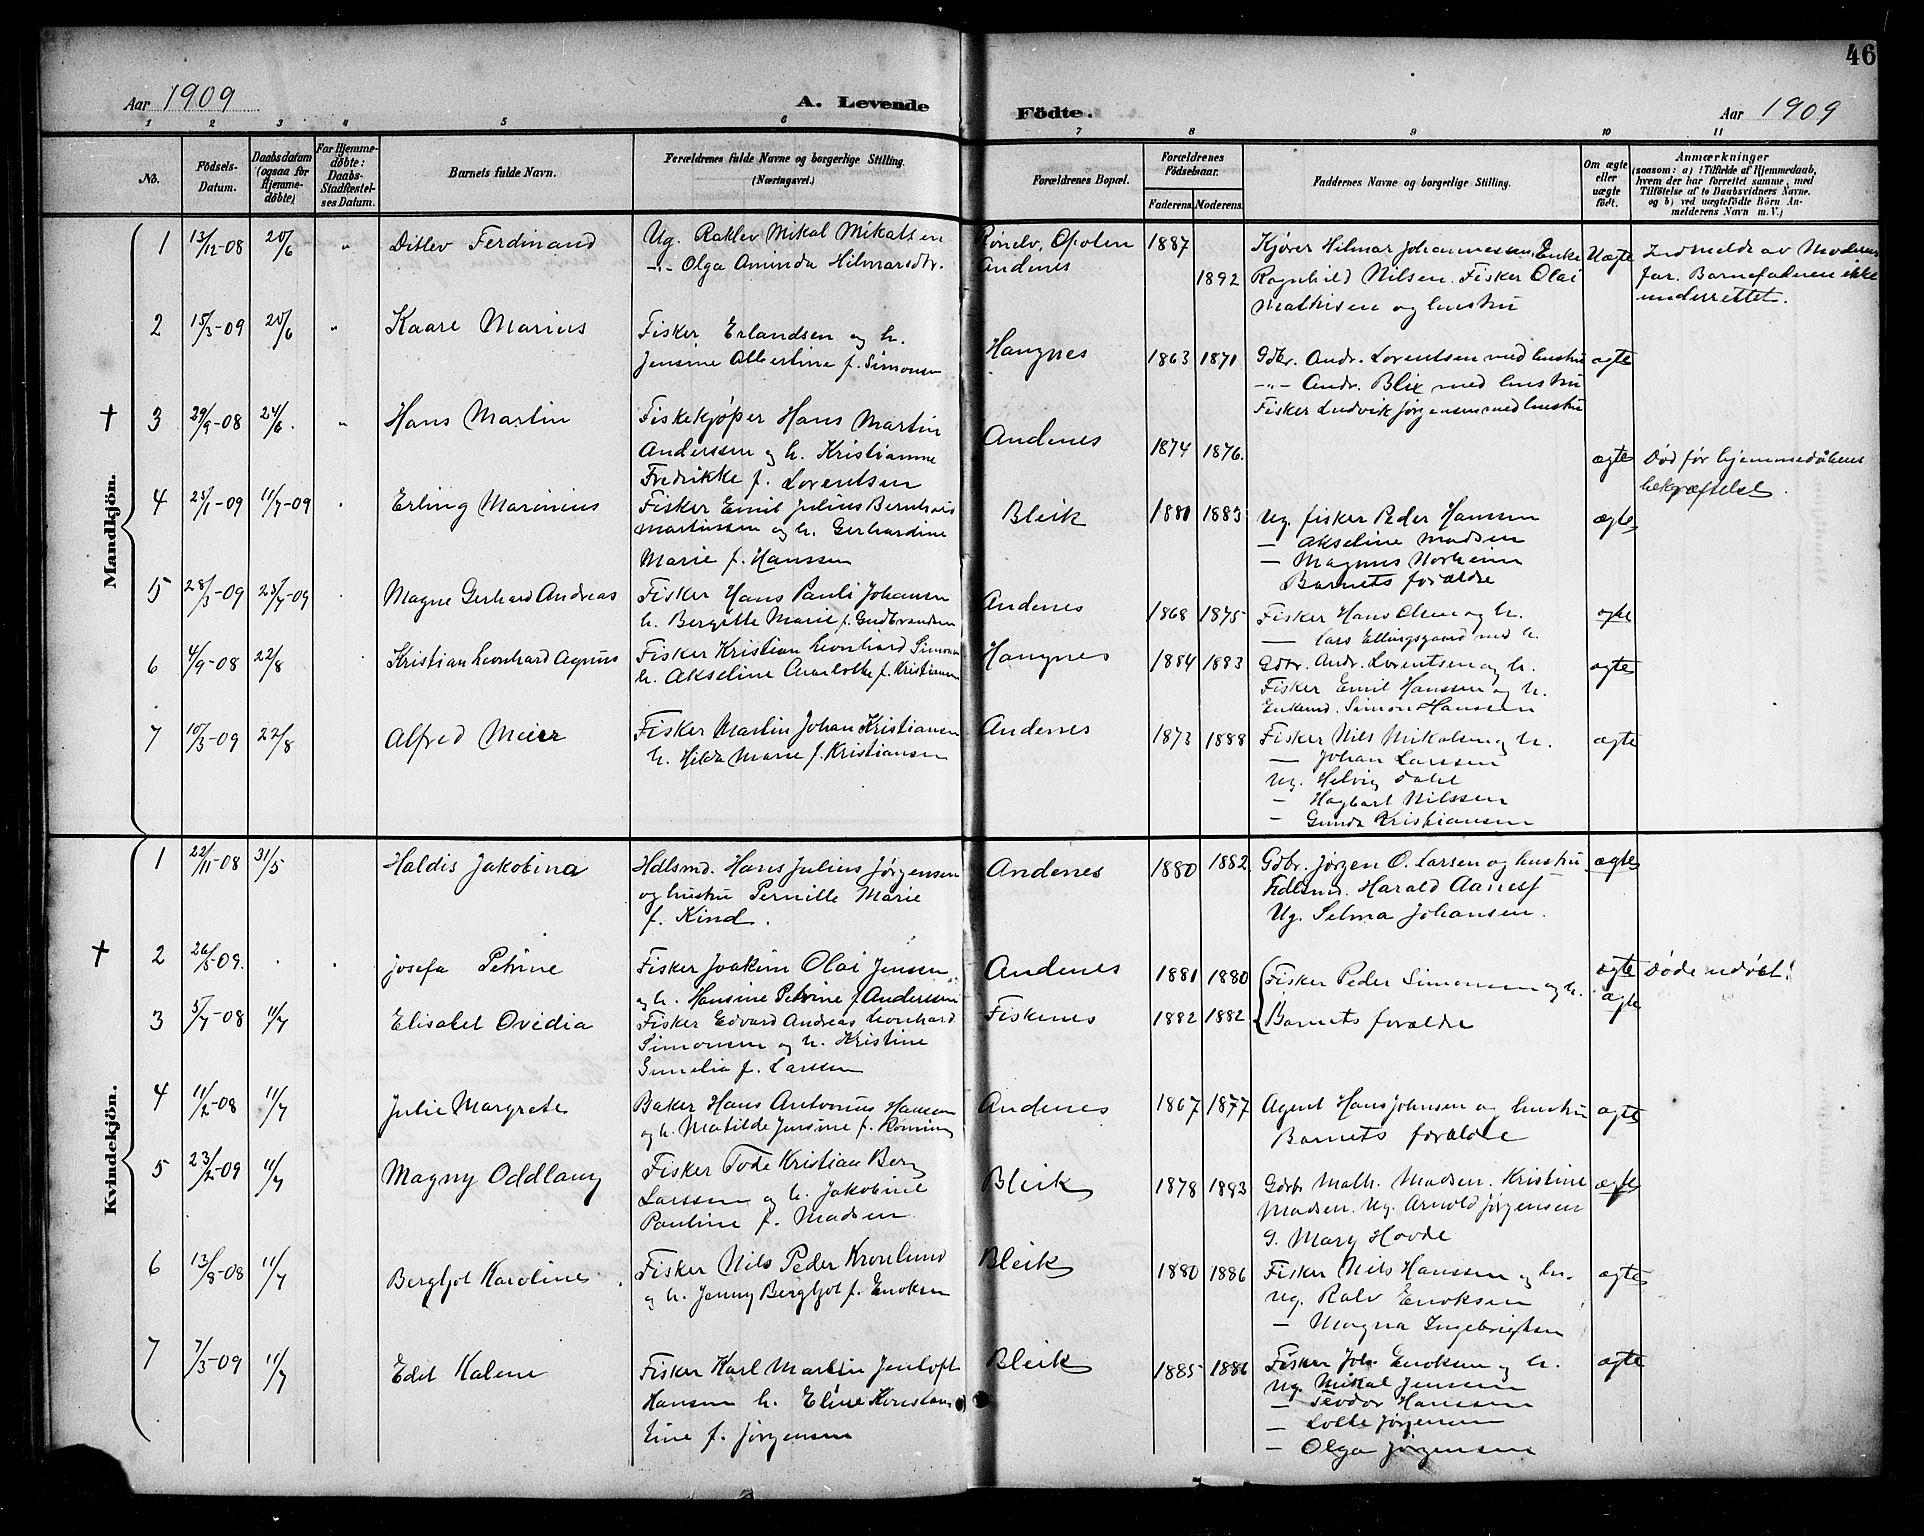 46
Aar 1909
A. Levende
Födte.
Aar 1909
1 2 3 4 5 6 7 8 9 10 11
No.
Födsels-Datum.
Daabsdatum (ogsaa for Hjemmedöbte)
For Hjemmedöbte: Daabs-Stadfæstelses Datum.
Barnets fulde Navn.
Forældrenes fulde Navne og borgerlige Stilling.
(Næringsvei.)
Forældrenes Bopæl.
Forældrenes Födselsaar.
Faderens. Moderens.
Faddernes Navne og borgerlige Stilling.
Om ægte eller uægte födt.
Anmærkninger
(saasom: a) i Tilfælde af Hjemmedaab, hvem der har forrettet samme, med Tilföielse af to Daabsvidners Navne. og b) ved uægtefödte Börn Anmelderens Navn m. V.)
Mandkjön.
1 13/12-08 20/6 " Ditlev Ferdinand
Ug. Mikal Mikalsen
-"- Olga Aminda Hilmarsdtr.
Andenes
1887 1892
Kjører Hilmar Johannessen, Enke
Ragnhild Nilsen. Fisker Olai
Mathisen og hustru
Uægte
Indmeldt av Moderens
far. Barnefaderen ikke
underrettet.
2 15/3-09 20/6 " Kaare Marius
Fisker Erlandsen og h.
Jensine Albertine f. Simonsen
Haugnes
1863 1871
Gdbr. Andr. Lorentsen med hustru
-"- Andr. Blix med hustru
Fisker Ludvik Jørgensen med hustru
ægte
† 3 29/9-08 24/6. " Hans Martin
Fiskekjøper Hans Martin
Anderssen og h. Kristianne
Fredrikke f. Lorentsen
Andenes
1874 1876.
ægte
Død før hjemmedåbens
bekræftelse.
4 25/1-09 11/7-09 Erling Marinius
Fisker Emil Julius Bernhard
Martinssen og h. Gerhardine
Marie f. Hanssen
Bleik
1881 1883
Ug. fisker Peder Hanssen
— Akseline Madsen
— Magnus Norheim
Barnets forældre
ægte
5 28/3-09 25/7-09 Magne Gerhard Andreas
Fisker Hans Pauli Johansen
h. Bergitte Marie f. Gudbrandsen
Andenes
1868 1875
Fisker Hans Olsen og h.
— Lars Ellingsgaard med h.
ægte
6 4/9-08 22/8 Kristian Leonhard Agnus
Fisker Kristian Leonhard Simonsen
h. Akseline Charlotte f. Kristiansen
Haugnes
1884 1883
Gdbr. Andr. Lorentsen og h.
Fisker Emil Hanssen og h.
Enkemd. Simon Hanssen
ægte
7 10/3-09 22/8 Alfred Meier
Fisker Martin Johan Kristiansen
h. Hilda Marie f. Kristiansen
Andenes
1873 1888
Fisker Nils Mikalsen og h.
— Johan Larssen
Ug. Helvig Dahl
— Hagbart Nilssen
— Gunda Kristiansen
ægte
Kvindekjön.
1 22/11-08 31/5 Haldis Jakobina
Hdlsmd. Hans Julius Jørgensen
og hustru Pernille Marie
f. Kind.
Andenes
1880 1882.
Gdbr. Jørgen O. Larsen og hustru
Hdlsmd. Harald Aanes
Ug. Selma Johansen.
ægte
† 2 26/5-09. Josefa Petrine
Fisker Joakim Olai Jensen
og h. Hansine Petrine f. Andersen
Andenes
1881 1880
Fisker Peder Simonsen og h.
ægte
Døde udøbt!
3 5/7-08 11/7 Elisabet Ovidia
Fisker Edvard Andreas Leonhard
Simonsen og h. Kristine
f. Larssen
Fiskenes
1882 1882
Barnets forældre
ægte
4 11/2-08 11/7 Julie Margrete
Baker Hans Antonius Hansen
og h. Matilde Jensine f. Roming
Andenes
1867 1877
Agent Hans Johnsen og hustru
Barnets forældre
ægte
5 23/2-09 11/7 Magny Oddlaug
Fisker Tode Kristian Berg
Larssen og h. Jakobine
Pauline f. Madsen
Bleik
1878 1883
Gdbr. Math. Madsen. Kristine
Madsen. Ug. Arnold Jørgensen
g. Mary Hovde
ægte
6 13/8-08 11/7 Bergljot Karoline
Fisker Nils Peder Kronlund
og h. Jenny Bergljot f. Enoksen
Bleik
1880 1886
Fisker Nils Hanssen og h.
Ug. Rolv Enoksen
— Magna Ingebrigtsen
ægte
7 7/3-09 11/7 Edel Kalene
Fisker Karl Martin Jentoft
Hansen h. Eline Kristian
Eine f. Jørgensen
Bleik
1885 1886
Fisker Joh. Enoksen og h.
Ug. Mikal Jensen
— Teodor Hanssen
— Lotte Jørgensen
— Olga Jørgensen
ægte